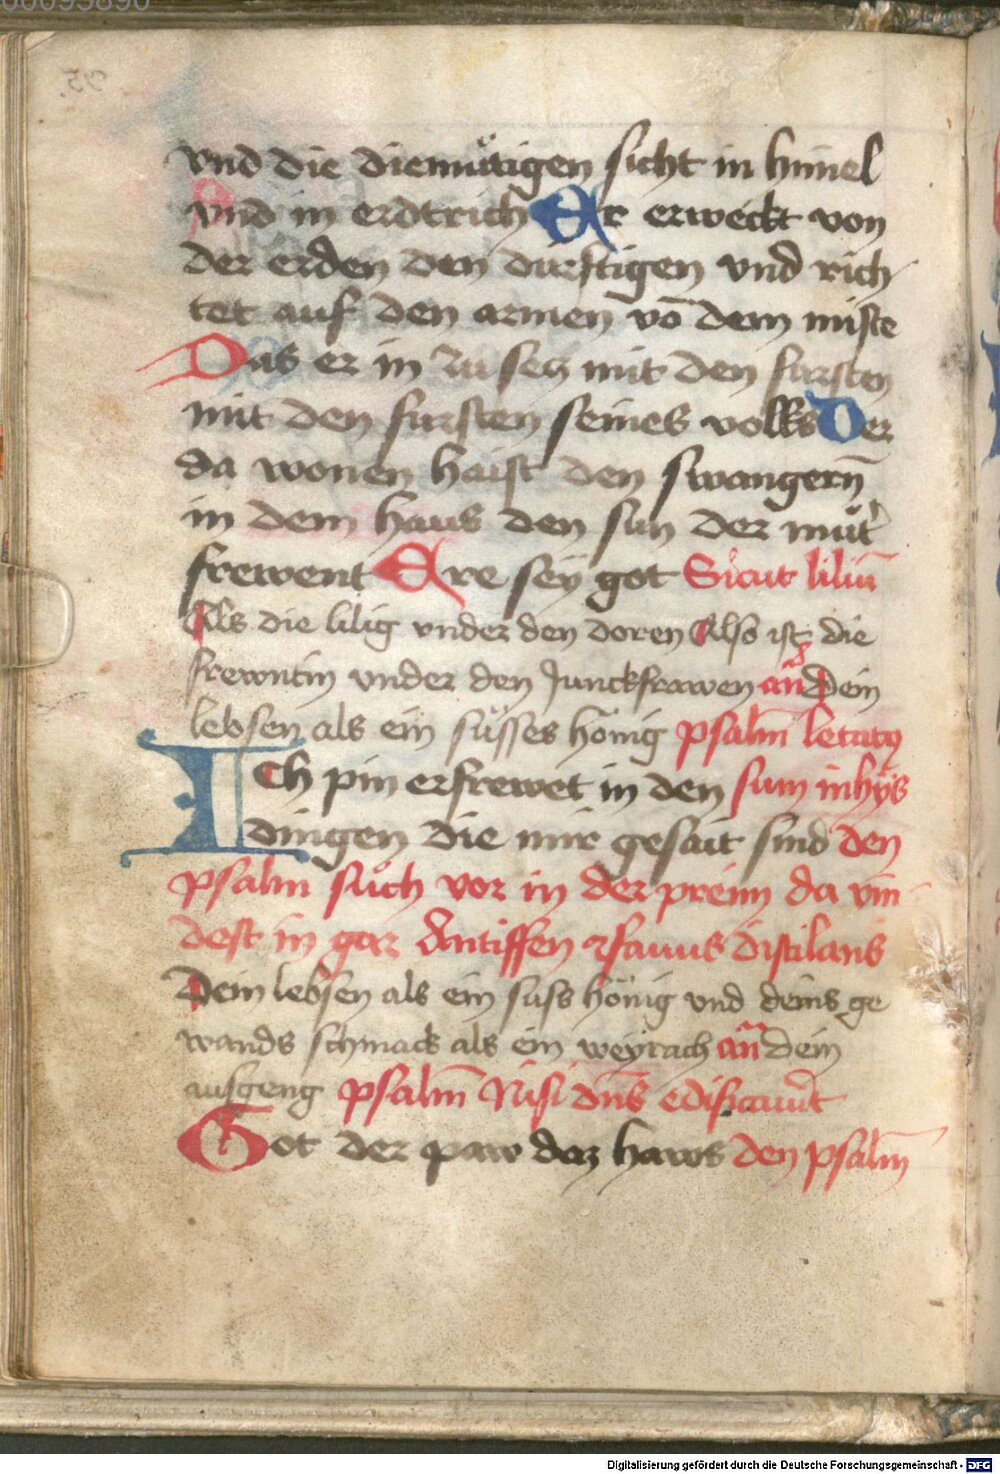 00095890
vnd die diemuͤtigen sicht in himel
vnd in erdtrich Er erweckt von
der erden den dürftigen vnd rich
tet auf den armen vō dem miste
Das er in zu secz mit den fürsten
mit den fursten seines volks Der
da wonen haist den swangern̄
in dem haus den sun der muͤt̉
frewent Ere sey got Sicut liliū
Als die lilig vnder den doren Also ist die
frewntin vnder den Junckfrawen an̄ Dein
lebsen als ein suͤsses hönig psalm̄ letatꝰ
Ich pin erfrewet in den sum in hijs
dingen die mir gesait sind den
psalm suͤch vor in der preim da vin
dest in gar Antiffen fauus distilans
Dein lebsen als ein suss hönig vnd deins ge
wands schmack als ein weyrach an̄ dein
ausgeng psalm̄ Nisi dn̄s edificaue͛t
Got der paw daz haws den psalm̄
Digitalisierung gefördert durch die Deutsche Forschungsgemeinschaft - DFG